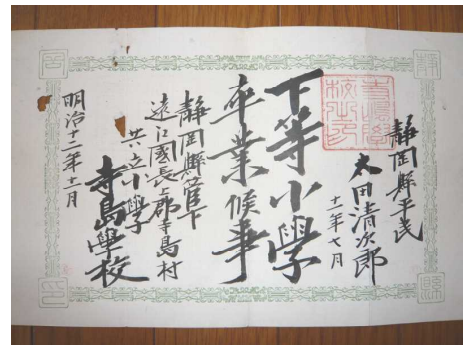 静岡縣平民
太田清次郎
十一年七月
下等小學
卒業候事
静岡縣管下
遠江國長上郡寺島村
共立小學
寺島學校
明治十二年十一月